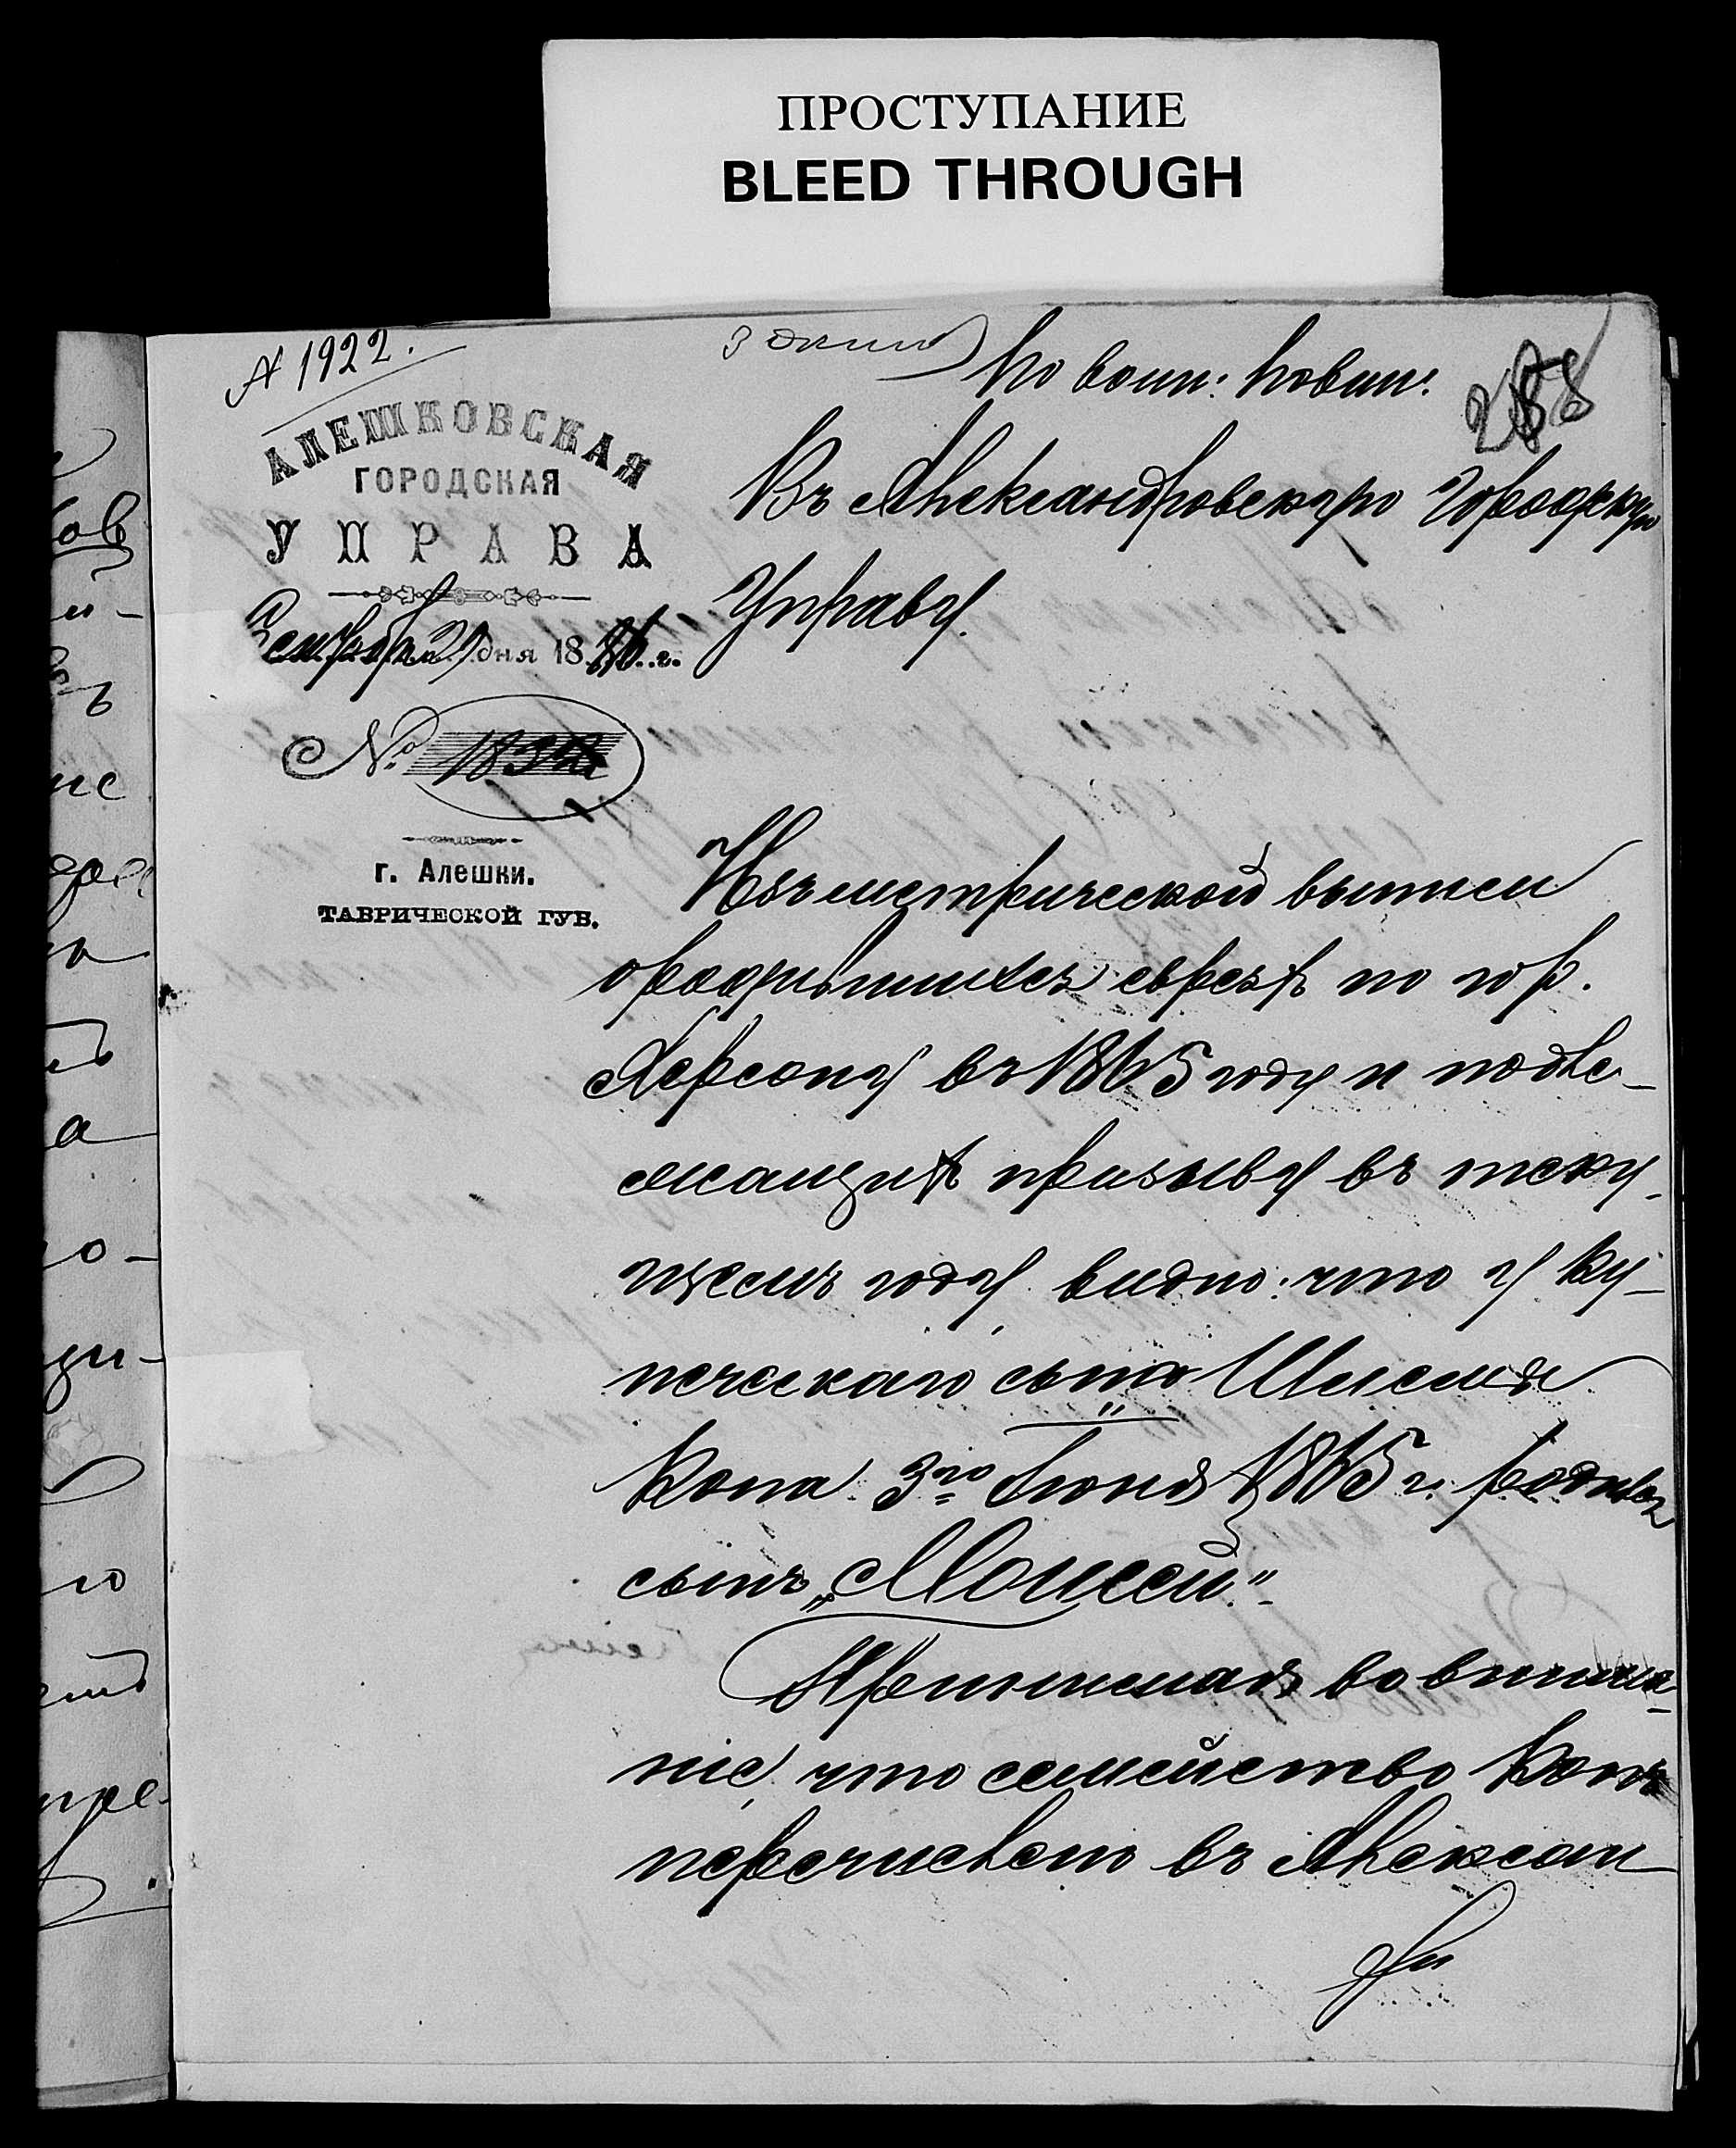 ПРОСТУПАНИЕ
BLEED THROUGH
№ 1922.
По воин: повин:
288
АЛЕШКОВСКАЯ
ГОРОДСКАЯ
УПРАВА
дня 18 86 г.
№ 1832
г. Алешки.
ТАВРИЧЕСКОЙ ГУБ.
Въ Александровскую Городскую
Управу.
Изъ метрической выписи
о родившихся евреяхъ по гор.
Херсону въ 1865 году и подле-
жащихъ призыву въ теку-
щемъ году, видно: что у ку-
печескаго сына Шлемы
Кона 3го Іюня 1865 г. родился
сынъ „Моисей“.
Принимая во внима-
ніе, что семейство Кона
перечислено въ Алексан